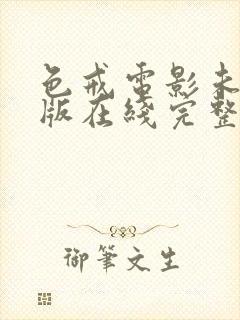 色戒電影未
版在綫完整
御筆文生